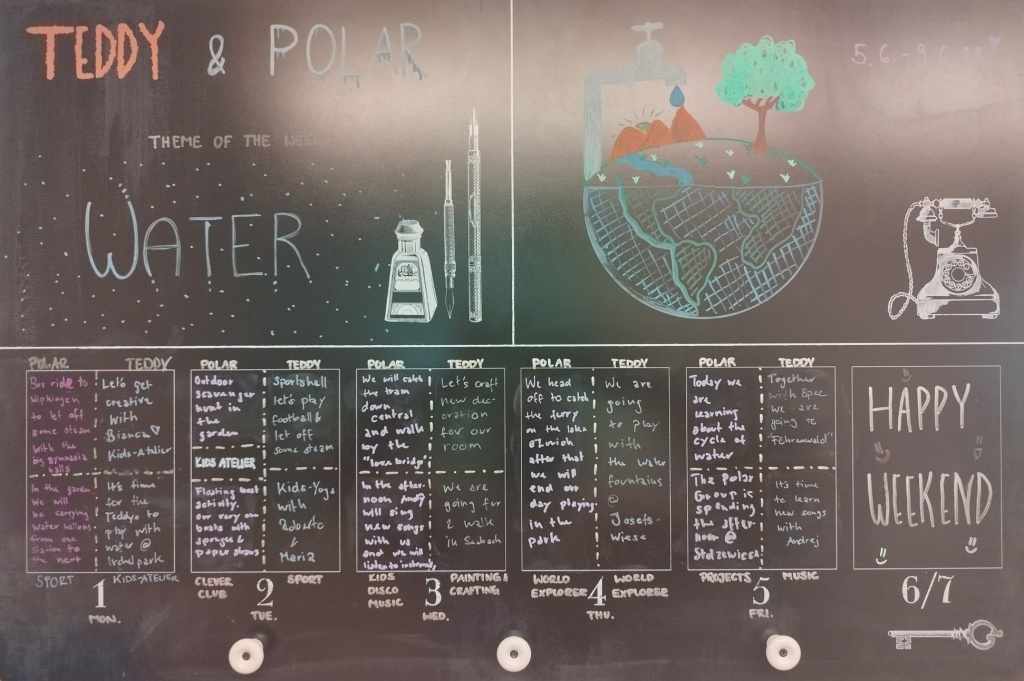 TEDDY & POLAR
5.6.-9.6.23
THEME OF THE WEEK
WATER
POLAR TEDDY
Bus ride to
Wipkingen
to let off
some steam
with the
big gymnasia
balls
Let's get
creative
with
Bianca♡
Kids-Atelier
In the garden
we will
be carrying
water ballons
from one
station to
the next
It's time
for the
Teddys to
play with
water @
Irchelpark
SPORT KIDS-ATELIER
1
MON.
POLAR TEDDY
Outdoor
scavenger
hunt in
the
garden
KIDS ATELIER
Sportshell
let's play
football &
let off
some steam
Floating boat
activity.
Our very own
boats with
sponge &
paper straws
Kids-Yoga
with
&
Maria
CLEVER
CLUB
SPORT
2
TUE.
POLAR TEDDY
We will catch
the tram
down
central
and walk
by the
"love bridge"
Let's craft
new dec-
oration
for our
room
In the after-
noon Andy
will sing
new songs
with us
and we will
listen to instrum.
We are
going for
a walk
in Seebach
KIDS
DISCO
MUSIC
PAINTING &
CRAFTING
3
WED.
POLAR TEDDY
We head
off to catch
the furry
on the lake
ZUrich
after that
we will
end our
day playing
in the
park
We are
going
to play
with
the water
fountains
@
Josefs-
Wiese
WORLD
EXPLORER
WORLD
EXPLORER
4
THU.
POLAR TEDDY
Today we
are
learning
about the
cycle of
water
Together
with
we are
going to
"Fehrenwald"
The Polar
Group is
spending
the after-
noon @
Stolzewiese
It's time
to learn
new songs
with
Andrej
PROJECTS MUSIC
5
FRI.
HAPPY
WEEKEND
6/7